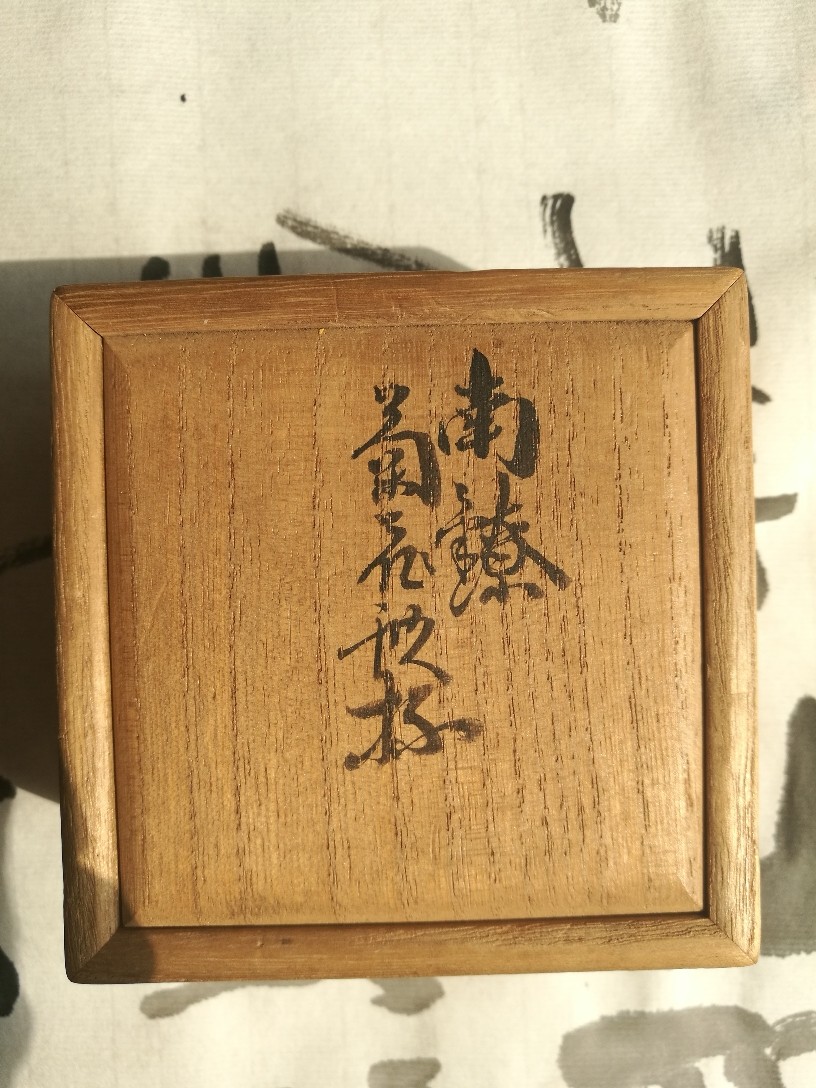 南鐐
菊花 杯